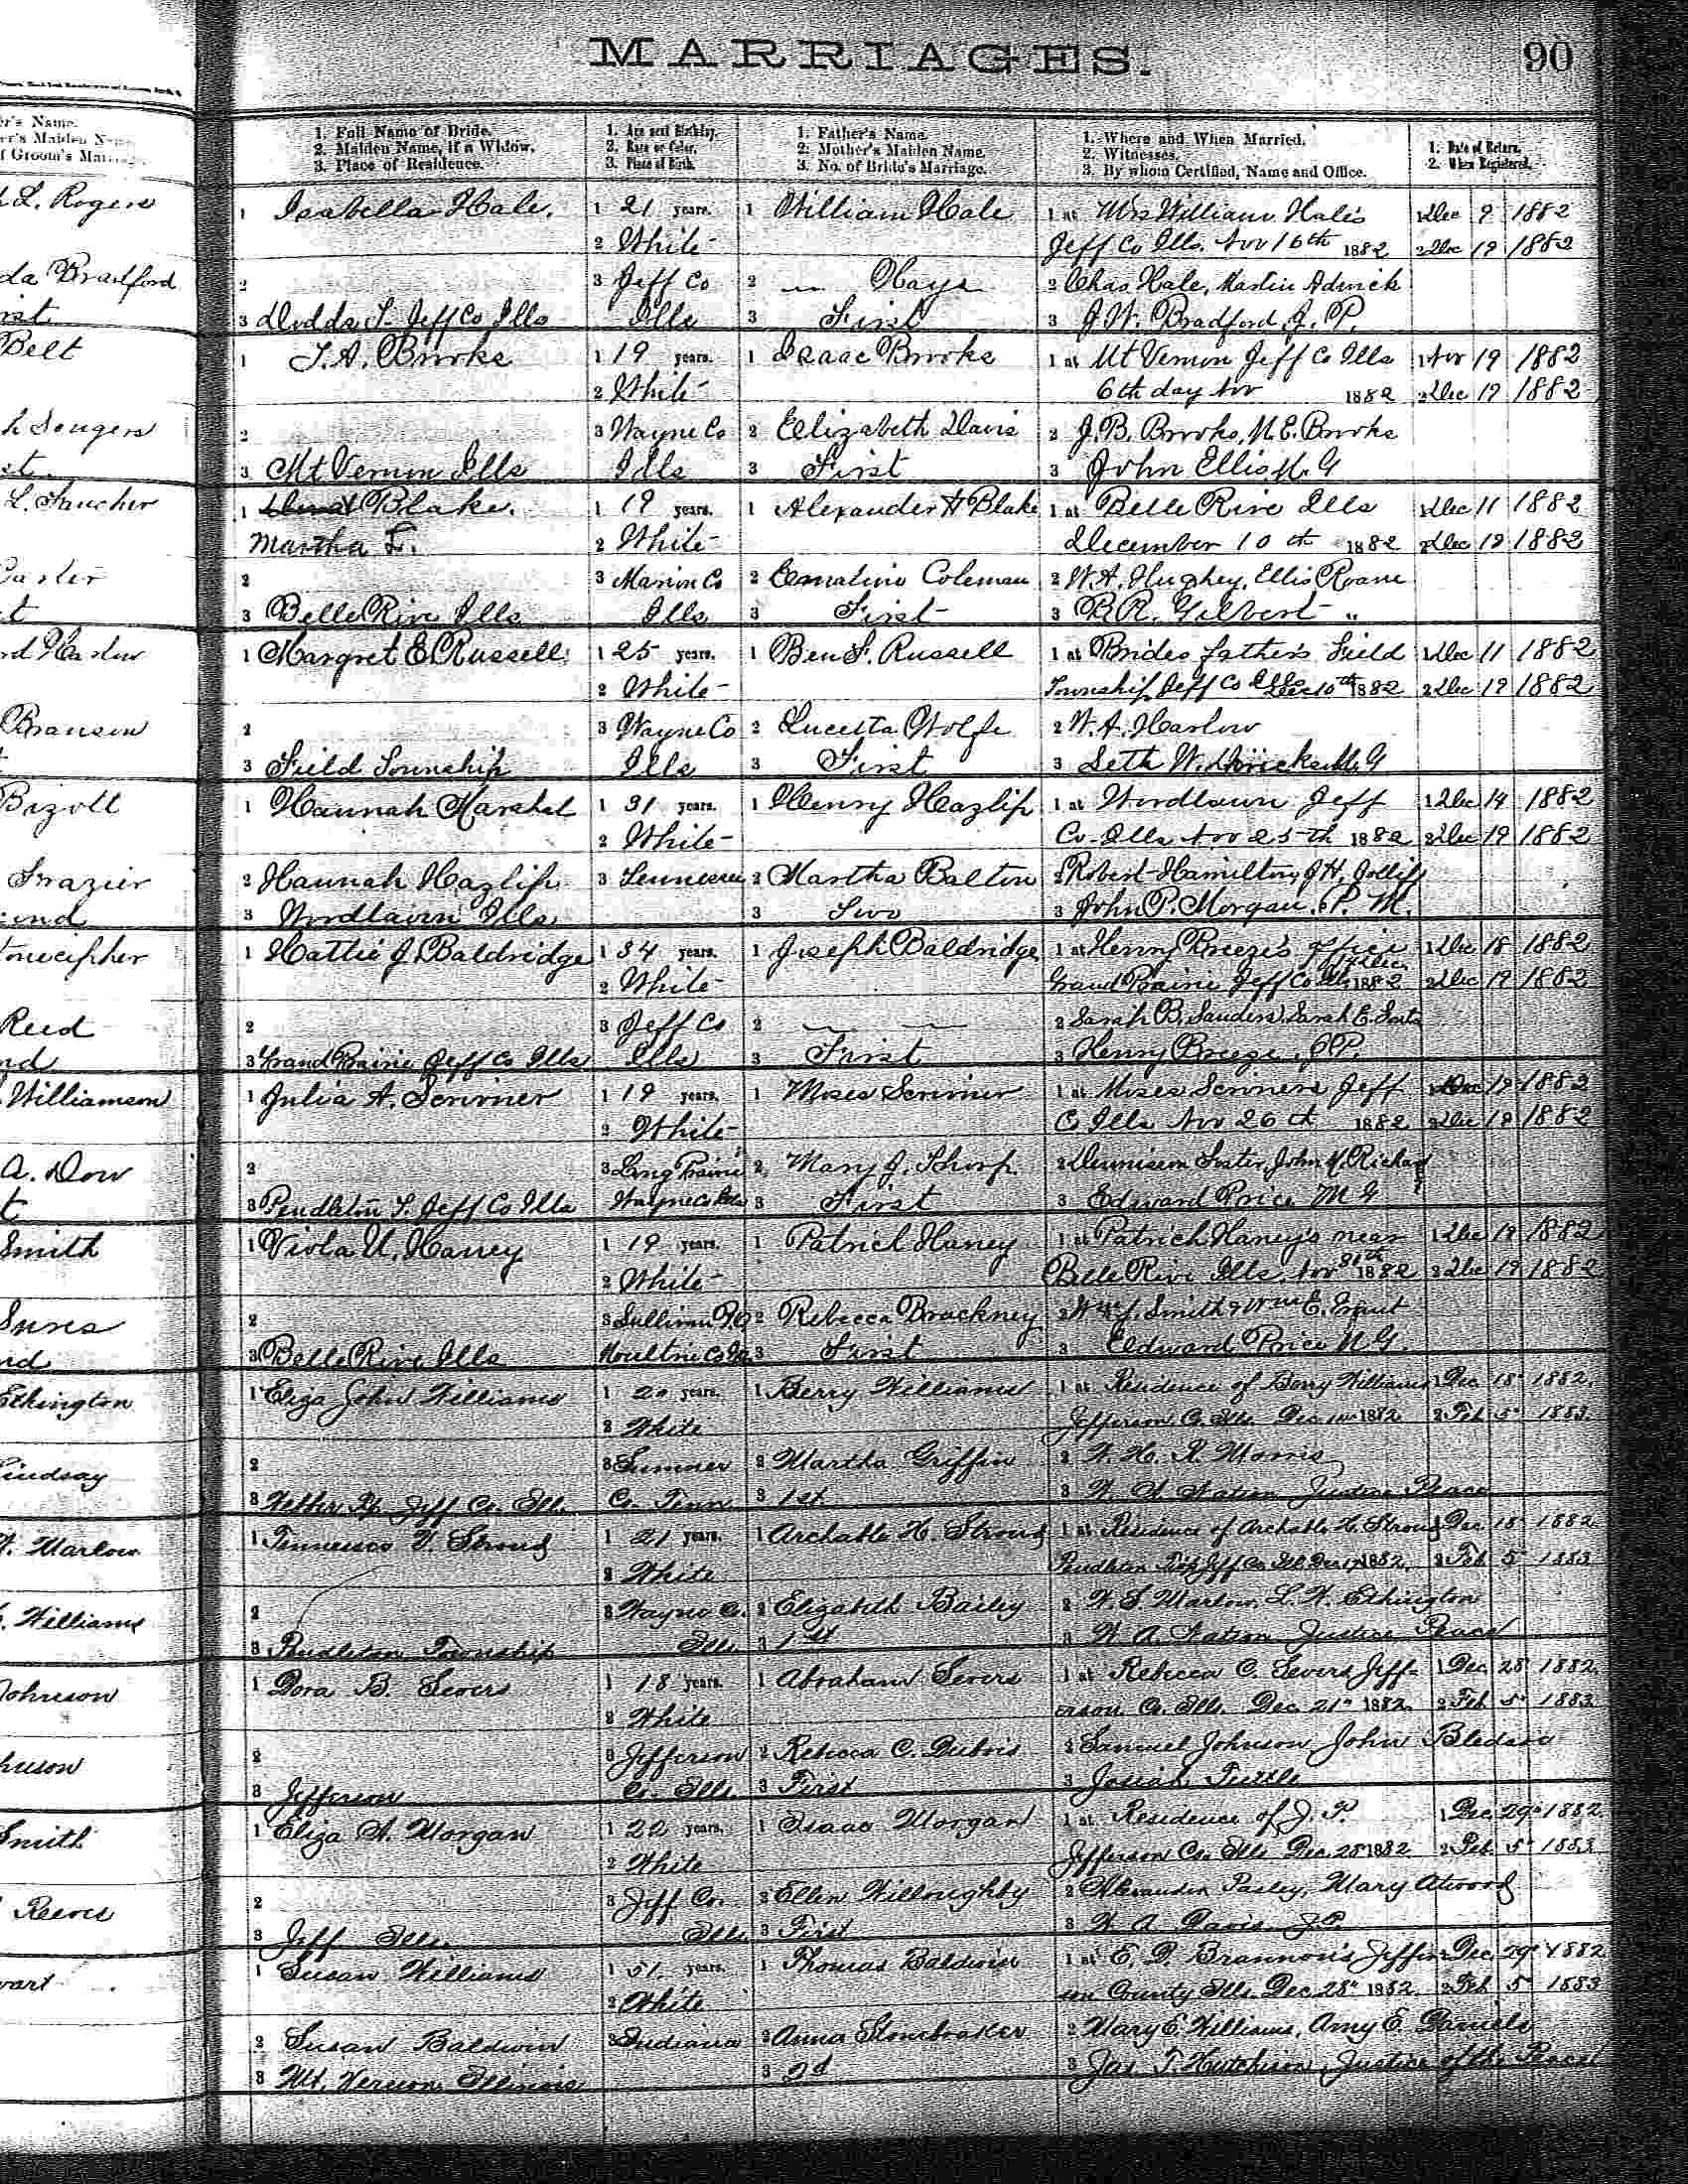 MARRIAGES. 90
1. Full Name of Bride. 1. Age next Birthday. 1. Father's Name. 1. Where and When Married. 1. Date of Return.
2. Maiden Name, if a Widow. 2. Race or Color. 2. Mother's Maiden Name. 2. Witnesses. 2. When Registered.
3. Place of Residence. 3. Place of Birth. 3. No. of Bride's Marriage. 3. By whom Certified, Name and Office.
L. Rogers 1 Isabella Hale. 1 21 years. 1 William Hale 1 at Mrs William Hale's 1 Dec 9 1882
2 White Jeff Co Ills. Nov 16th 1882 2 Dec 19 1882
da Bradford 2 3 Jeff Co 2 — Hays 2 Chas Hale, Martin
3 Dodds T. Jeff Co Ills Ills 3 First 3 J. W. Bradford J. P.
Belt 1 T. A. Brooks 1 19 years. 1 Isaac Brooks 1 at Mt Vernon Jeff Co Ills 1 Nov 19 1882
2 White 6th day Nov 1882 2 Dec 19 1882
h Songers 2 3 Wayne Co 2 Elizabeth Davis 2 J. B. Brooks, M. E. Brooks
st. 3 Mt Vernon Ills Ills 3 First 3 John Ellis M. G
L. Fancher 1 Blake. 1 19 years. 1 Alexander H Blake 1 at Belle Rive Ills 1 Dec 11 1882
Martha E. 2 White December 10th 1882 2 Dec 19 1882
2 3 Marion Co 2 Coleman 2 W. A. Hughey, Ellis Roane
t 3 Belle Rive Ills Ills 3 First 3 B. R. Gilbert "
1 Margret E. Russell 1 25 years. 1 Ben F. Russell 1 at Brides fathers Field 1 Dec 11 1882
2 White Township Jeff Co Ills Dec 10th 1882 2 Dec 19 1882
Branson 2 3 Wayne Co 2 Lucetta Wolfe 2 W. A. Harlow
3 Field Township Ills 3 First 3 Seth W. M. G
1 Hannah Marshal 1 31 years. 1 Henry Hazlip 1 at Woodlawn Jeff 1 Dec 14 1882
2 White Co Ills Nov 25th 1882 2 Dec 19 1882
Frazier 2 Hannah Hazlip 3 Tennessee 2 Martha Balton 2 Robert Hamilton, J. H. Jolliff
3 Woodlawn Ills 3 Two 3 John P. Morgan, P. M.
1 Hattie J. Baldridge 1 34 years. 1 Joseph Baldridge 1 at Henry Breeze's office 1 Dec 18 1882
2 White Grand Prairie Jeff Co Ills 1882 2 Dec 19 1882
Reed 2 3 Jeff Co 2 — — 2 Sarah B. Sanders, Sarah E.
nd 3 Grand Prairie Jeff Co Ills Ills 3 First 3 Henry Breeze, J P.
Williamson 1 Julia A. Scrivner 1 19 years. 1 Moses Scrivner 1 at Moses Scrivners Jeff 1 Dec 19 1882
2 White Co Ills Nov 26th 1882 2 Dec 19 1882
A. Dow 2 3 Long Prairie 2 Mary J. Thorp 2 Dennison Foster, John Y. Richard
t 3 Pendleton T. Jeff Co Ills Wayne Co Ills 3 First 3 Edward Price M G
Smith 1 Viola U. Haney 1 19 years. 1 Patrick Haney 1 at Patrick Haney's near 1 Dec 19 1882
2 White Belle Rive Ills. Nov 1882 2 Dec 19 1882
2 3 Sullivan P.O 2 Rebecca Brackney 2 Wm J. Smith & Wm E.
nd 3 Belle Rive Ills Moultrie Co Ills 3 First 3 Edward Price M G.
Ethington 1 Eliza John Williams 1 20 years. 1 Berry Williams 1 at Residence of Berry Williams 1 Dec 18 1882.
2 White Jefferson Co. Ills. Dec 1882 2 Feb 5 1883.
Lindsay 2 3 Sumner 2 Martha Griffin 2 W. H. R. Morris
3 Jeff Co. Ill. Co. Tenn 3 1st 3 W. A. Justice Peace
Marlow 1 Tennessee V. Stroud 1 21 years. 1 Archable H. Stroud 1 at Residence of Archable H. Stroud Dec. 18 1882
2 White Pendleton Tp Jeff Co. Ill Dec 17 1882. 2 Feb 5 1883
Williams 2 3 Wayne Co. 2 Elizabeth Bailey 2 W. S. Marlow, L. W. Ethington
3 Pendleton Township Ills 3 1st 3 W. A. Justice Peace
Johnson 1 Dora B. Severs 1 18 years. 1 Abraham Severs 1 at Rebecca C. Severs Jeff- 1 Dec 28 1882.
2 White erson Co. Ills. Dec. 21st 1882. 2 Feb 5 1883
hnson 2 3 Jefferson 2 Rebecca C. Dubois 2 Samuel Johnson John Bledsoe
3 Jefferson Co. Ills. 3 First 3 Josiah Tuttle
Smith 1 Eliza A. Morgan 1 22 years. 1 Isaac Morgan 1 at Residence of J. P. 1 Dec. 29 1882.
2 White Jefferson Co. Ills Dec. 28 1882 2 Feb. 5 1883
Reeves 2 3 Jeff Co. 2 Ellen Willoughby 2 Alexander Pasley, Mary Atwood
3 Jeff Ills. Ills 3 First 3 W. A. Davis J P
1 Susan Williams 1 51 years. 1 Thomas Baldwin 1 at E. D. Brannon's Jeffer Dec. 29 1882
2 White son County Ills. Dec. 28th 1882. 2 Feb 5 1883
2 Susan Baldwin 3 Indiana 2 Anna Stonebraker 2 Mary E. Williams, Amy E. Daniels
3 Mt. Vernon Illinois 3 2d 3 Jas. T. Hutchison Justice of the Peace